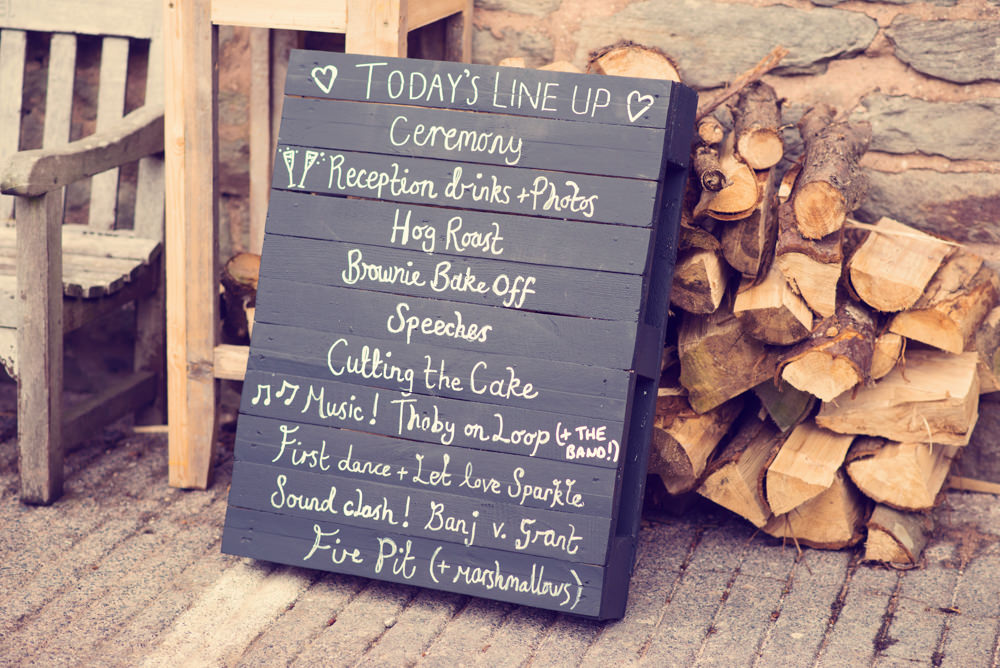 TODAY'S LINE UP
Ceremony
Reception drinks + Photos
Hog Roast
Brownie Bake Off
Speeches
Cutting the Cake
Music! Thoby on Loop (+ THE BAND!)
First dance + Let love Sparkle
Sound clash! Banj v. Grant
Fire Pit (+ marshmallows)